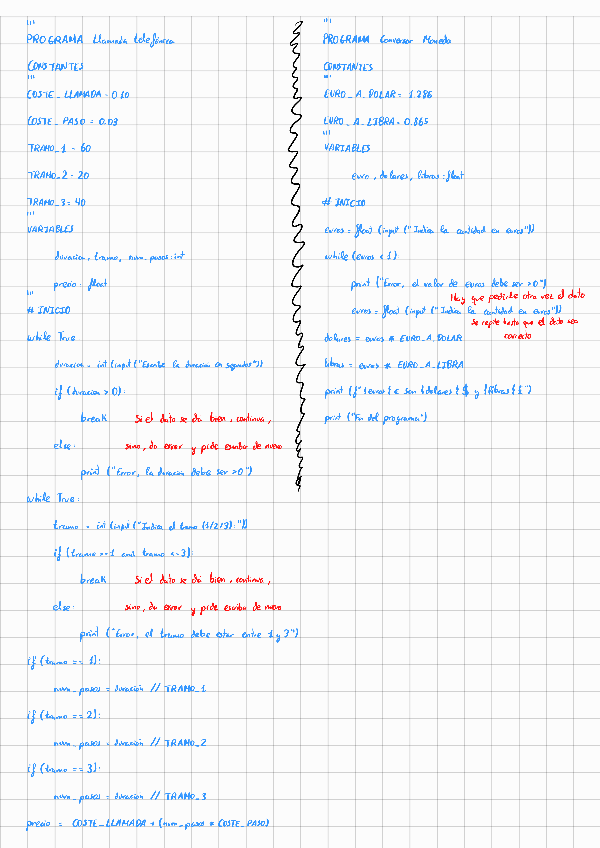 '''
PROGRAMA Llamada telefónica
CONSTANTES
'''
COSTE_LLAMADA = 0.10
COSTE_PASO = 0.03
TRAMO_1 = 60
TRAMO_2 = 20
TRAMO_3 = 40
'''
VARIABLES
duracion, tramo, num_pasos: int
precio: float
'''
# INICIO
while True
duracion = int (input ("Escribe la duracion en segundos"))
if (duracion > 0):
break Si el dato se da bien, continua,
else: sino, da error y pide escribir de nuevo
print ("Error, la duracion debe ser >0")
while True:
tramo = int (input ("Indica el tramo (1/2/3):"))
if (tramo >=1 and tramo <=3):
break Si el dato se da bien, continua,
else: sino, da error y pide escribir de nuevo
print ("Error, el tramo debe estar entre 1 y 3")
if (tramo == 1):
num_pasos = duracion // TRAMO_1
if (tramo == 2):
num_pasos = duracion // TRAMO_2
if (tramo == 3):
num_pasos = duracion // TRAMO_3
precio = COSTE_LLAMADA + (num_pasos * COSTE_PASO)
'''
PROGRAMA Conversor Moneda
CONSTANTES
'''
EURO_A_DOLAR = 1.286
EURO_A_LIBRA = 0.865
'''
VARIABLES
euro, dolares, libras: float
# INICIO
euros = float (input ("Indica la cantidad en euros"))
while (euros < 1)
print ("Error, el valor de euros debe ser >0")
Hay que pedirle otra vez el dato
euros = float (input ("Indica la cantidad en euros"))
Se repite hasta que el dato sea
correcto
dolares = euros * EURO_A_DOLAR
libras = euros * EURO_A_LIBRA
print (f"{euros} € son {dolares} $ y {libras} £")
print ("Fin del programa")